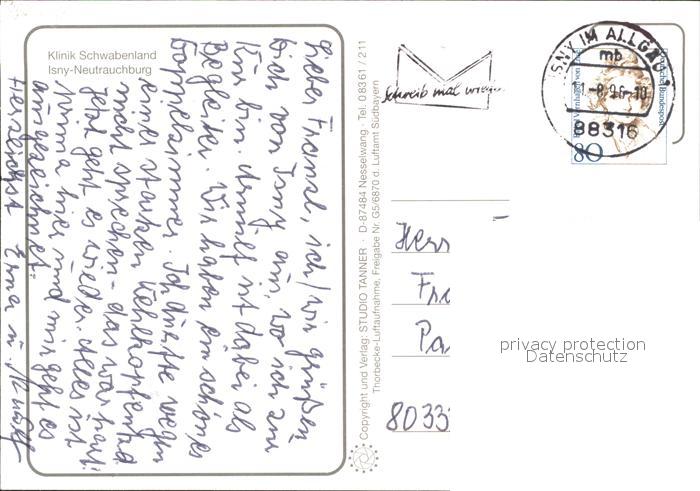 Klinik Schwabenland
Isny-Neutrauchburg
Lieber Franzl, ich/wir grüßen
Dich von Isny aus, wo ich zur
Kur bin. Arnulf ist dabei als
Begleiter. Wir haben ein schönes
Doppelzimmer. Ich durfte wegen
einer starken Kehlkopfentzd
nicht sprechen - das war hart!
Jetzt geht es wieder. Alles ist
prima hier und mir geht es
ausgezeichnet.
Herzlichst Erna u. Arnulf
Copyright und Verlag: STUDIO TANNER · D-87484 Nesselwang · Tel. 0 83 61 / 2 11
Thorbecke-Luftaufnahme, Freigabe Nr. G5/6870 d. Luftamt Südbayern
Schreib mal wieder
ISNY IM ALLGÄU
mb
-8.96-10
88316
Deutsche Bundespost
80
Herr
Fr
Pa
8033
privacy protection
Datenschutz